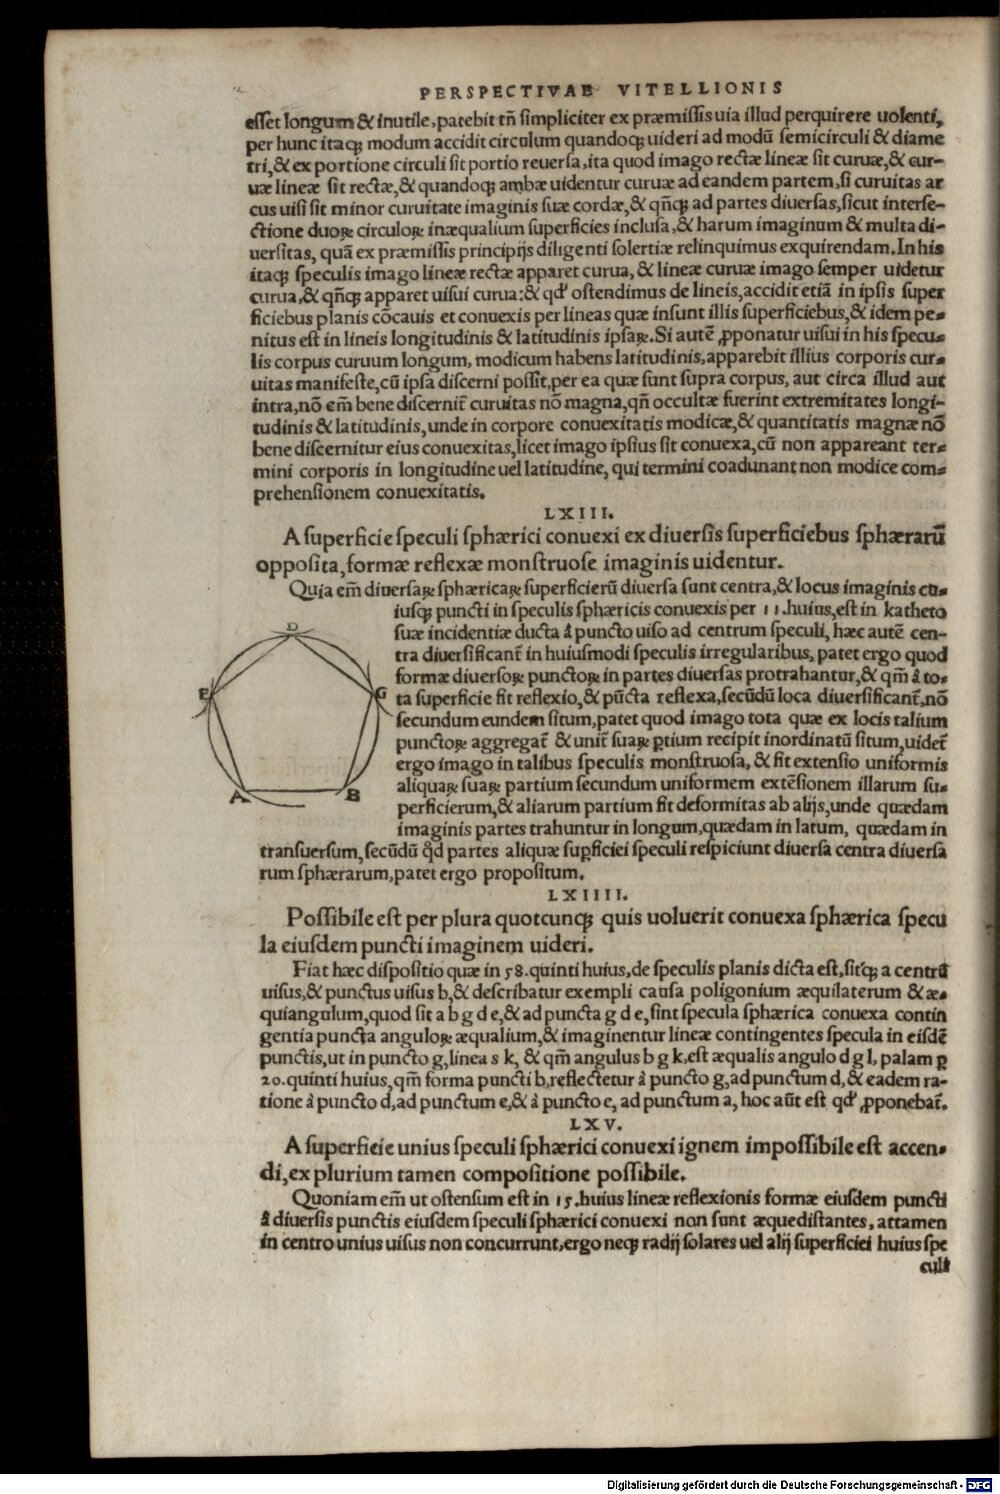 PERSPECTIVAE VITELLIONIS
esset longum & inutile, patebit tñ simpliciter ex præmissis uia illud perquirere uolenti,
per hunc itaqꝫ modum accidit circulum quandoqꝫ uideri ad modũ semicirculi & diame
tri, & ex portione circuli sit portio reuersa, ita quod imago rectæ lineæ sit curuæ, & cur-
uæ lineæ sit rectæ, & quandoqꝫ ambæ uidentur curuæ ad eandem partem, si curuitas ar
cus uisi sit minor curuitate imaginis suæ cordæ, & qñqꝫ ad partes diuersas, sicut interse-
ctione duoꝝ circuloꝝ inæqualium superficies inclusa, & harum imaginum & multa di-
uersitas, quã ex præmissis principijs diligenti solertiæ relinquimus exquirendam. In his
itaqꝫ speculis imago lineæ rectæ apparet curua, & lineæ curuæ imago semper uidetur
curua, & qñqꝫ apparet uisui curua: & qđ ostendimus de lineis, accidit etiã in ipsis super
ficiebus planis cõcauis et conuexis per lineas quæ insunt illis superficiebus, & idem pe-
nitus est in lineis longitudinis & latitudinis ipsaꝝ. Si autẽ ꝓponatur uisui in his specu-
lis corpus curuum longum, modicum habens latitudinis, apparebit illius corporis cur-
uitas manifeste, cũ ipsa discerni possit, per ea quæ sunt supra corpus, aut circa illud aut
intra, nõ em̃ bene discernit̃ curuitas nõ magna, qñ occultæ fuerint extremitates longi-
tudinis & latitudinis, unde in corpore conuexitatis modicæ, & quantitatis magnæ nõ
bene discernitur eius conuexitas, licet imago ipsius sit conuexa, cũ non appareant ter-
mini corporis in longitudine uel latitudine, qui termini coadunant non modice com-
prehensionem conuexitatis.
LXIII.
A superficie speculi sphærici conuexi ex diuersis superficiebus sphærarũ
opposita, formæ reflexæ monstruose imaginis uidentur.
Quia em̃ diuersaꝝ sphæricaꝝ superficierũ diuersa sunt centra, & locus imaginis cu-
iusqꝫ puncti in speculis sphæricis conuexis per 11. huius, est in katheto
suæ incidentiæ ducta à puncto uiso ad centrum speculi, hæc autẽ cen-
tra diuersificant̃ in huiusmodi speculis irregularibus, patet ergo quod
formæ diuersoꝝ punctoꝝ in partes diuersas protrahantur, & qm̃ à to-
ta superficie fit reflexio, & pũcta reflexa, secũdũ loca diuersificant̃, nõ
secundum eundem situm, patet quod imago tota quæ ex locis talium
punctoꝝ aggregat̃ & unit̃ suaꝝ ꝑtium recipit inordinatũ situm, uidet̃
ergo imago in talibus speculis monstruosa, & fit extensio uniformis
aliquaꝝ suaꝝ partium secundum uniformem extẽsionem illarum su-
perficierum, & aliarum partium fit deformitas ab alijs, unde quædam
imaginis partes trahuntur in longum, quædam in latum, quædam in
transuersum, secũdũ qd partes aliquæ suꝑficiei speculi respiciunt diuersa centra diuersa
rum sphærarum, patet ergo propositum.
D
E
G
A
B
LXIIII.
Possibile est per plura quotcunqꝫ quis uoluerit conuexa sphærica specu
la eiusdem puncti imaginem uideri.
Fiat hæc dispositio quæ in 58. quinti huius, de speculis planis dicta est, sitqꝫ a centrũ
uisus, & punctus uisus b, & describatur exempli causa poligonium æquilaterum & æ-
quiangulum, quod sit a b g d e, & ad puncta g d e, sint specula sphærica conuexa contin
gentia puncta anguloꝝ æqualium, & imaginentur lineæ contingentes specula in eisdẽ
punctis, ut in puncto g, linea s k, & qm̃ angulus b g k, est æqualis angulo d g l, palam ꝑ
20. quinti huius, qm̃ forma puncti b, reflectetur à puncto g, ad punctum d, & eadem ra-
tione à puncto d, ad punctum e, & à puncto e, ad punctum a, hoc aũt est qđ ꝓponebat̃.
LXV.
A superficie unius speculi sphærici conuexi ignem impossibile est accen-
di, ex plurium tamen compositione possibile.
Quoniam em̃ ut ostensum est in 15. huius lineæ reflexionis formæ eiusdem puncti
à diuersis punctis eiusdem speculi sphærici conuexi non sunt æquedistantes, attamen
in centro unius uisus non concurrunt, ergo neqꝫ radij solares uel alij superficiei huius spe
culi
Digitalisierung gefördert durch die Deutsche Forschungsgemeinschaft - DFG